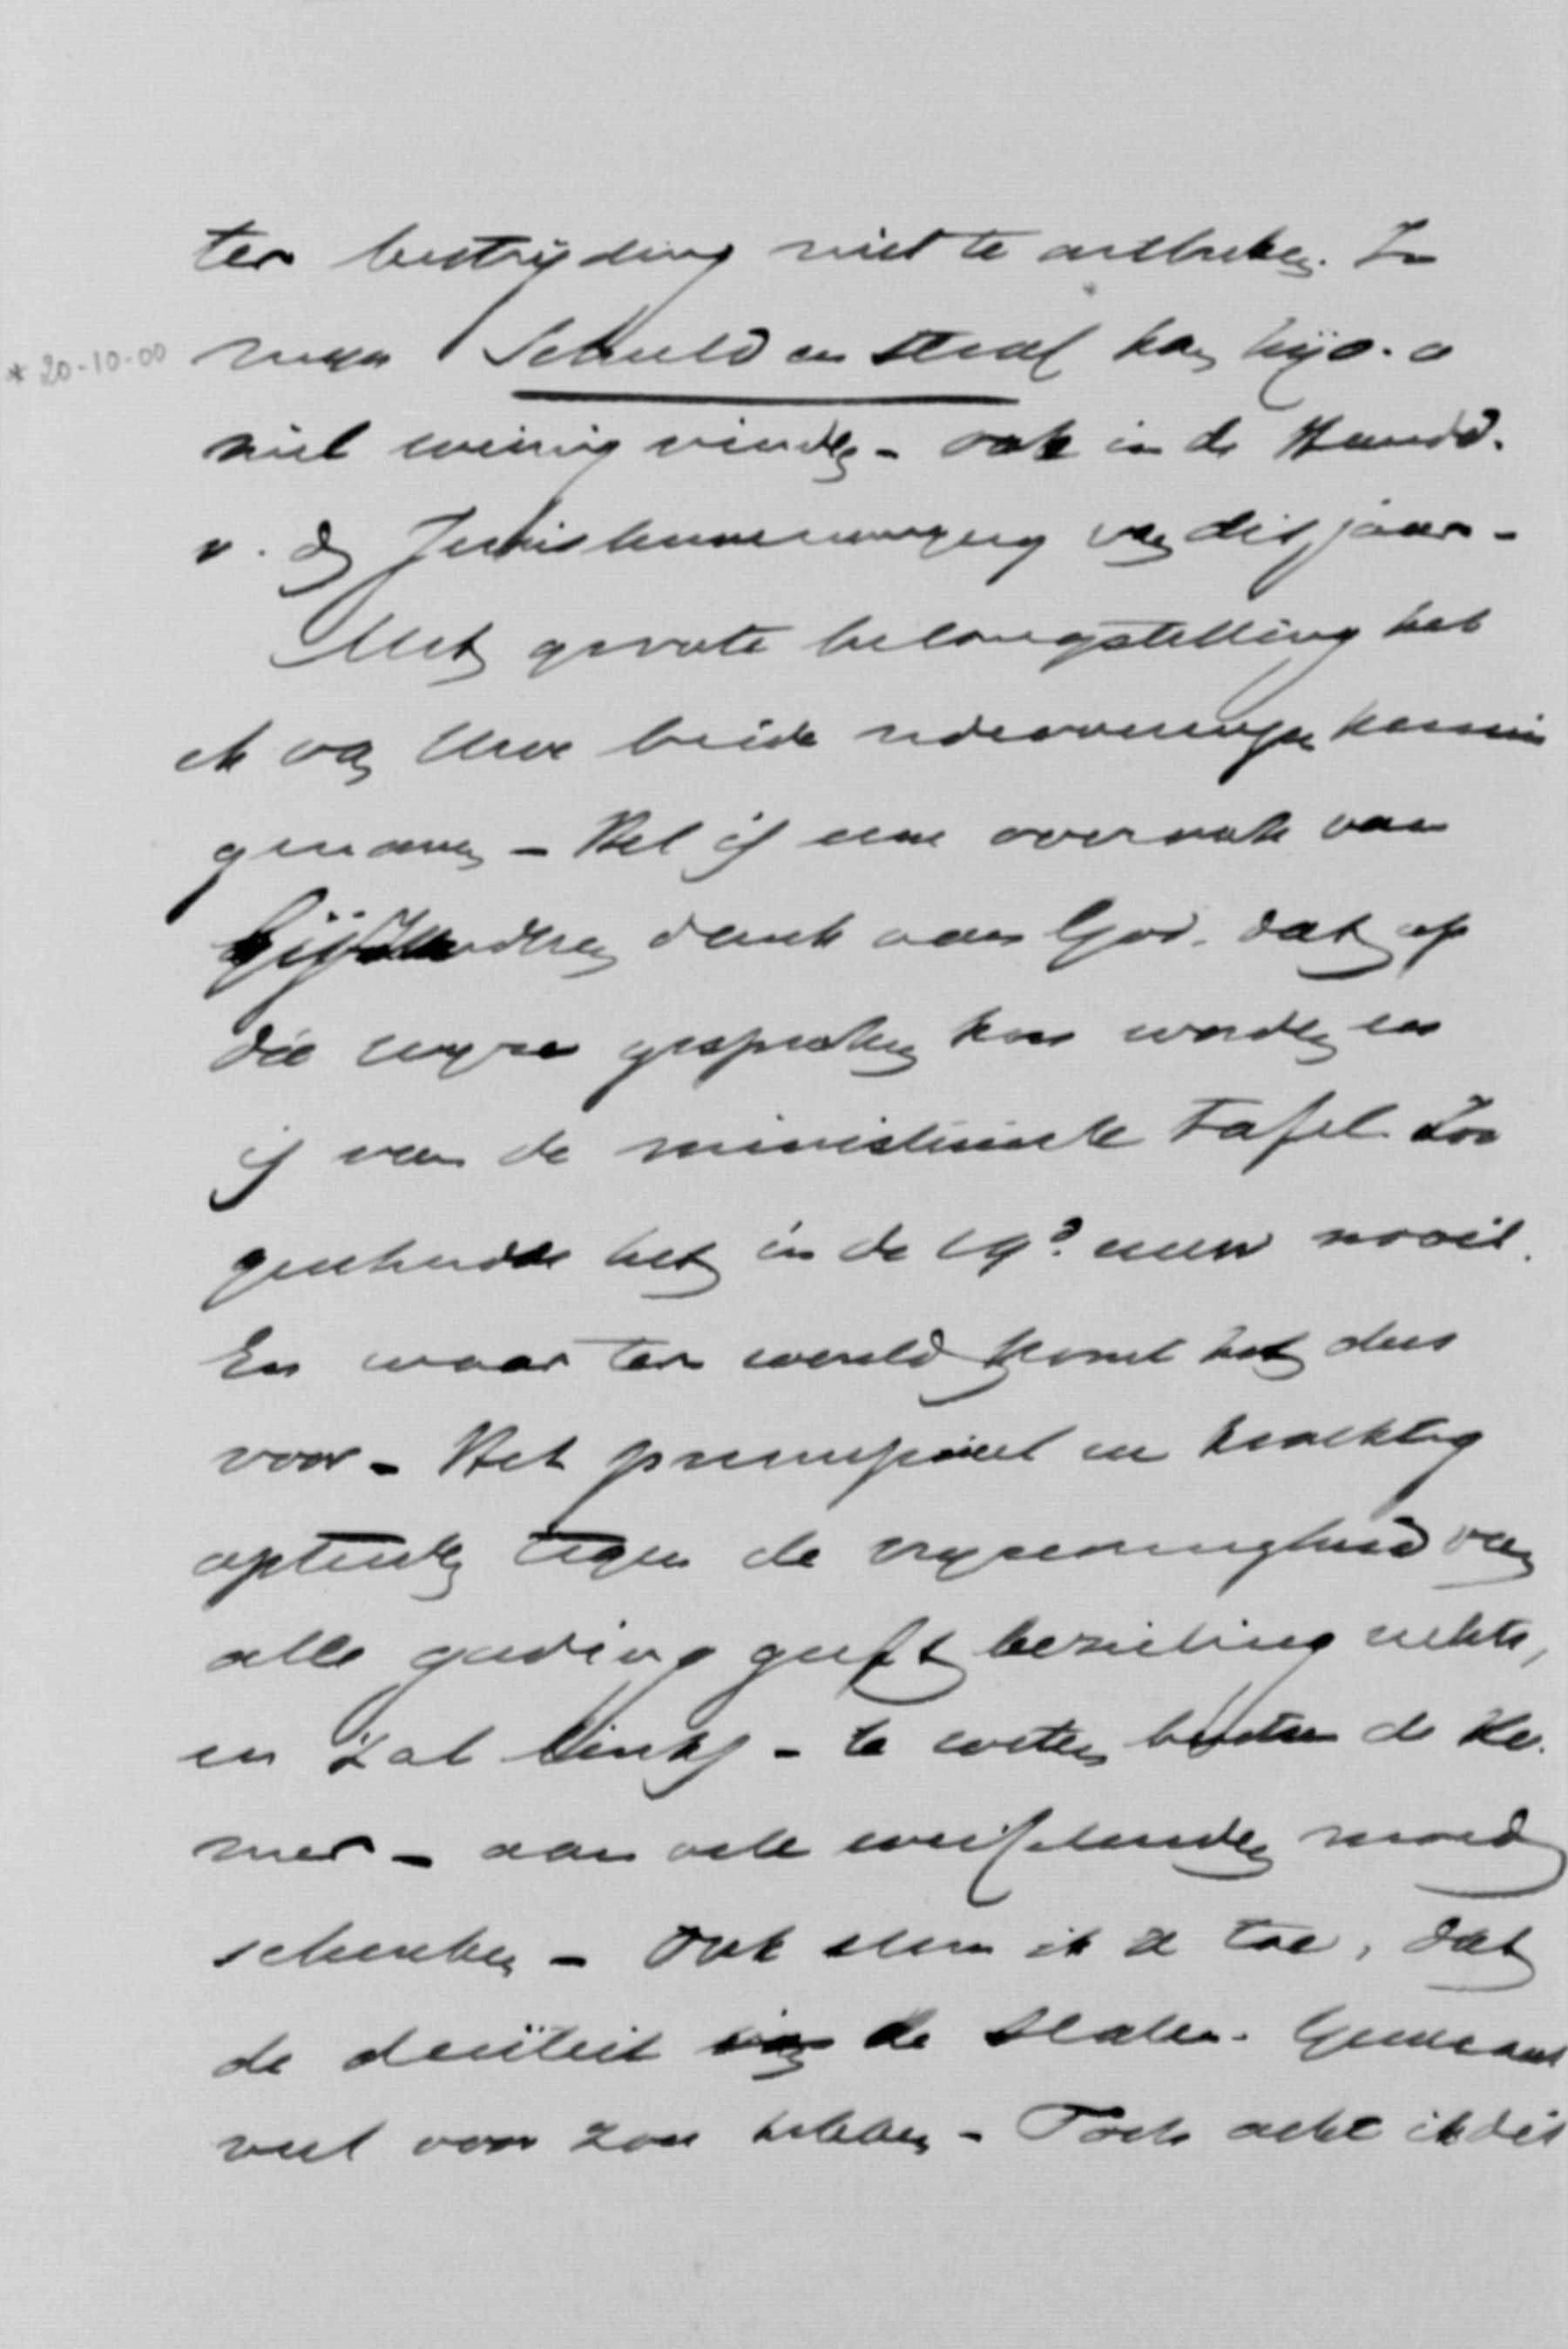 ter bestrijding niet te ontbreken. In
* 20-10-00 mijn Schuld en Straf kan hij o. a
niet weinig vinden - ook in de Handd.
v. de Juristenvereeniging van dit jaar -
Met groote belangstelling heb
ik van Uwe beide redevoeringen kennis
genomen - Het is eene oorzaak van
dank aan God, dat op
die wijze gesproken kan worden en
is van de ministerieele tafel. Zoo
gebeurde het in de 19e eeuw nooit.
En waar ter wereld komt het dus
voor - Het principieel en krachtig
optreden tegen de vrijzinnigheid van
alle gading geeft bezieling rechts,
en zal links - te weten buiten de Ka-
mer - aan vele weifelenden moed
schenken - Ook stem ik U toe, dat
de deïteit van de Staten-Generaal
veel voor zou hebben - Toch acht ik dit